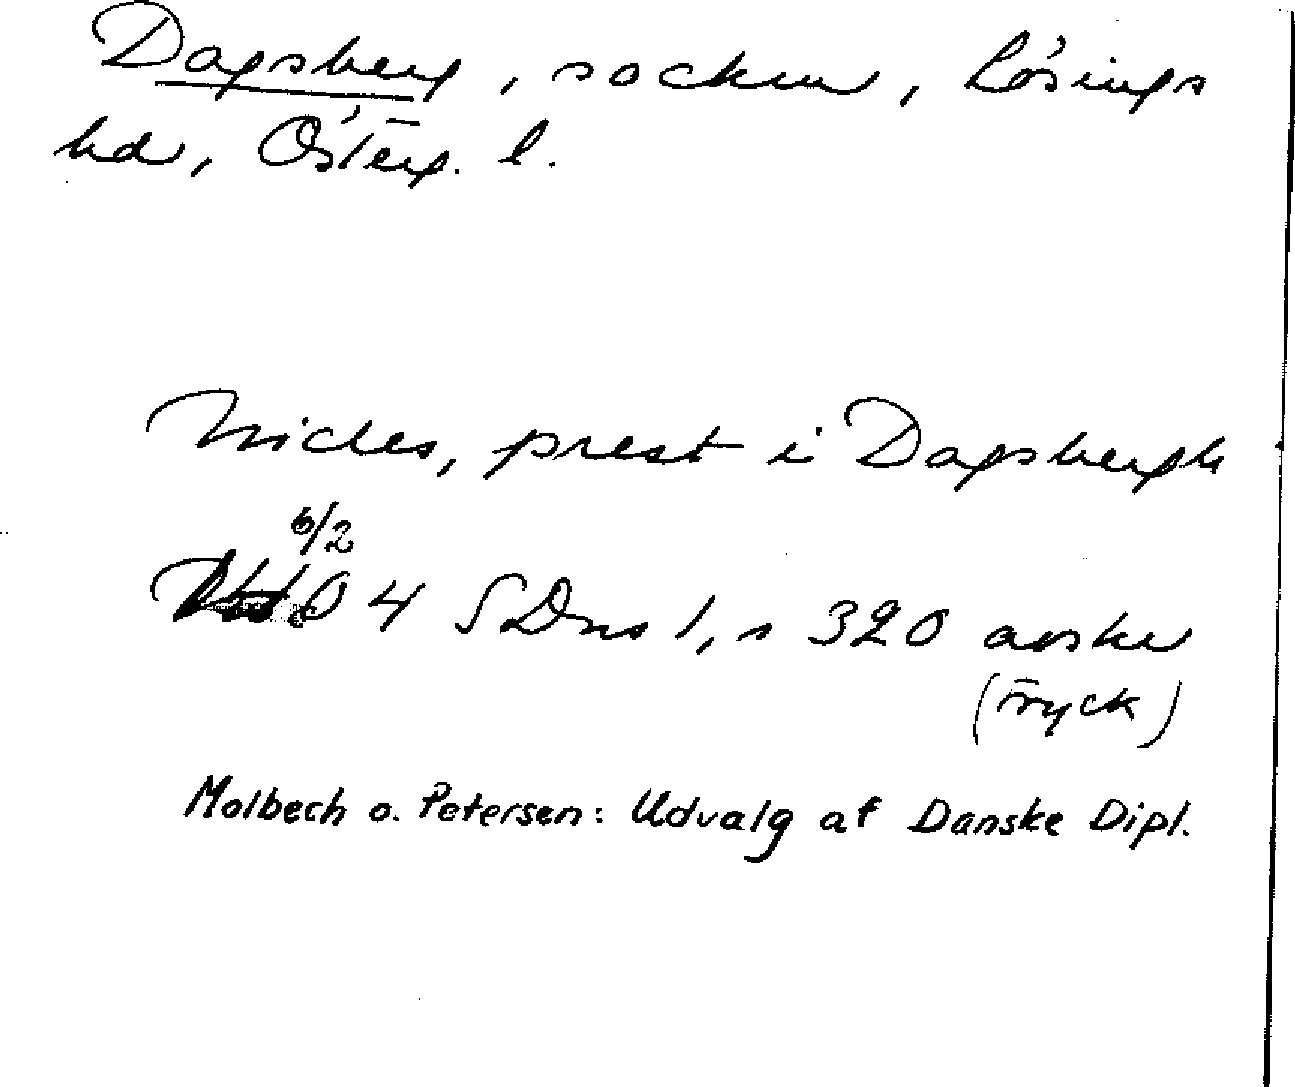 Dagsberg, socken, Lösings
hd, Österg. l.
Nicles, prest i Dagsbergh
6/2
04 SDns 1, s 320 avskr
(tryck)
Molbech o. Petersen: Udvalg af Danske Dipl.